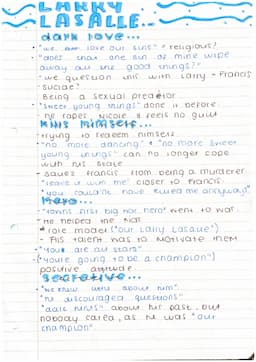 LARRY
LASALLE...
dark love...
"we all love our sins" - religious?
"does that one sin of mine wipe
away all the good things?"
- we question this with Larry + Francis
- suicide?
Being a sexual predator
"sweet young things" done it before
he rapes Nicole & feels no guilt
Kills himself...
trying to redeem himself
"no more dancing" & "no more sweet
young things" can no longer cope
with his state
- saves Francis from being a murderer
"leave it with me" closer to Francis
"you couldn't have killed me anyway"
Hero...
"towns first big war hero" went to war
He helped the
role model ("our Larry LaSalle")
- His talent was to motivate them
"You are all stars"
("you're going to be a champion")
positive attitude
Secretive...
"we knew about him"
"he discouraged questions"
"dark hints" about his past, but
nobody cared, as he was "our
champion"